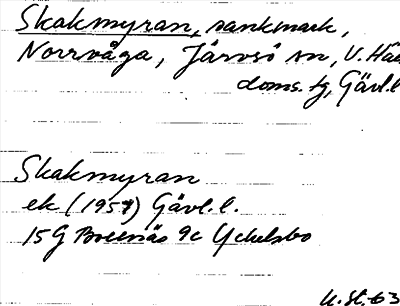 Skakmyran, sankmark,
Norrvåga, Järvsö sn, V. Häl
doms. tg, Gävl. l
Skakmyran
ek (1957) Gävl. l.
15G Bollnäs 9c Ycklsbo
U. St. 63